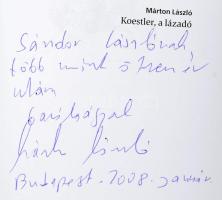 Márton László
Koestler, a lázadó
Sándor Lászlónak
több mint ötven év
után
barátsággal
László
Budapest. 2008. január